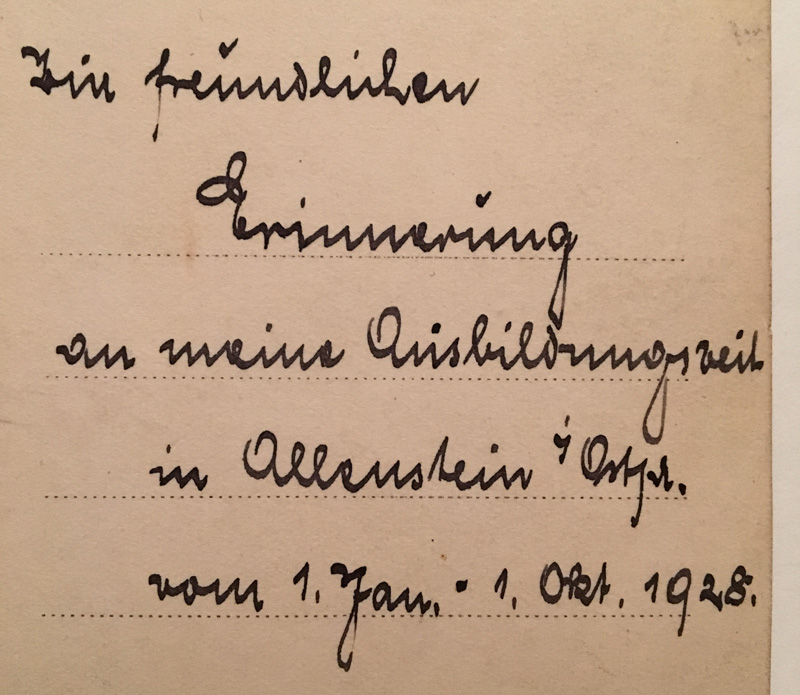 Zur freundlichen
Erinnerung
an meine Ausbildungszeit
in Allenstein i/ Ostpr.
vom 1. Jan. - 1. Okt. 1928.